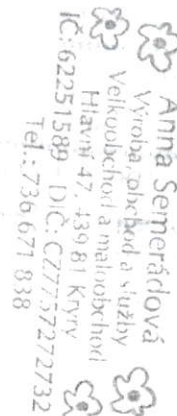 Anna Semerádová
Výroba, obchod a služby
Velkoobchod a maloobchod
Hlavní 47, 439 81 Kryry
IČ: 62251589 DIČ: CZ7757272732
Tel.: 736 671 838